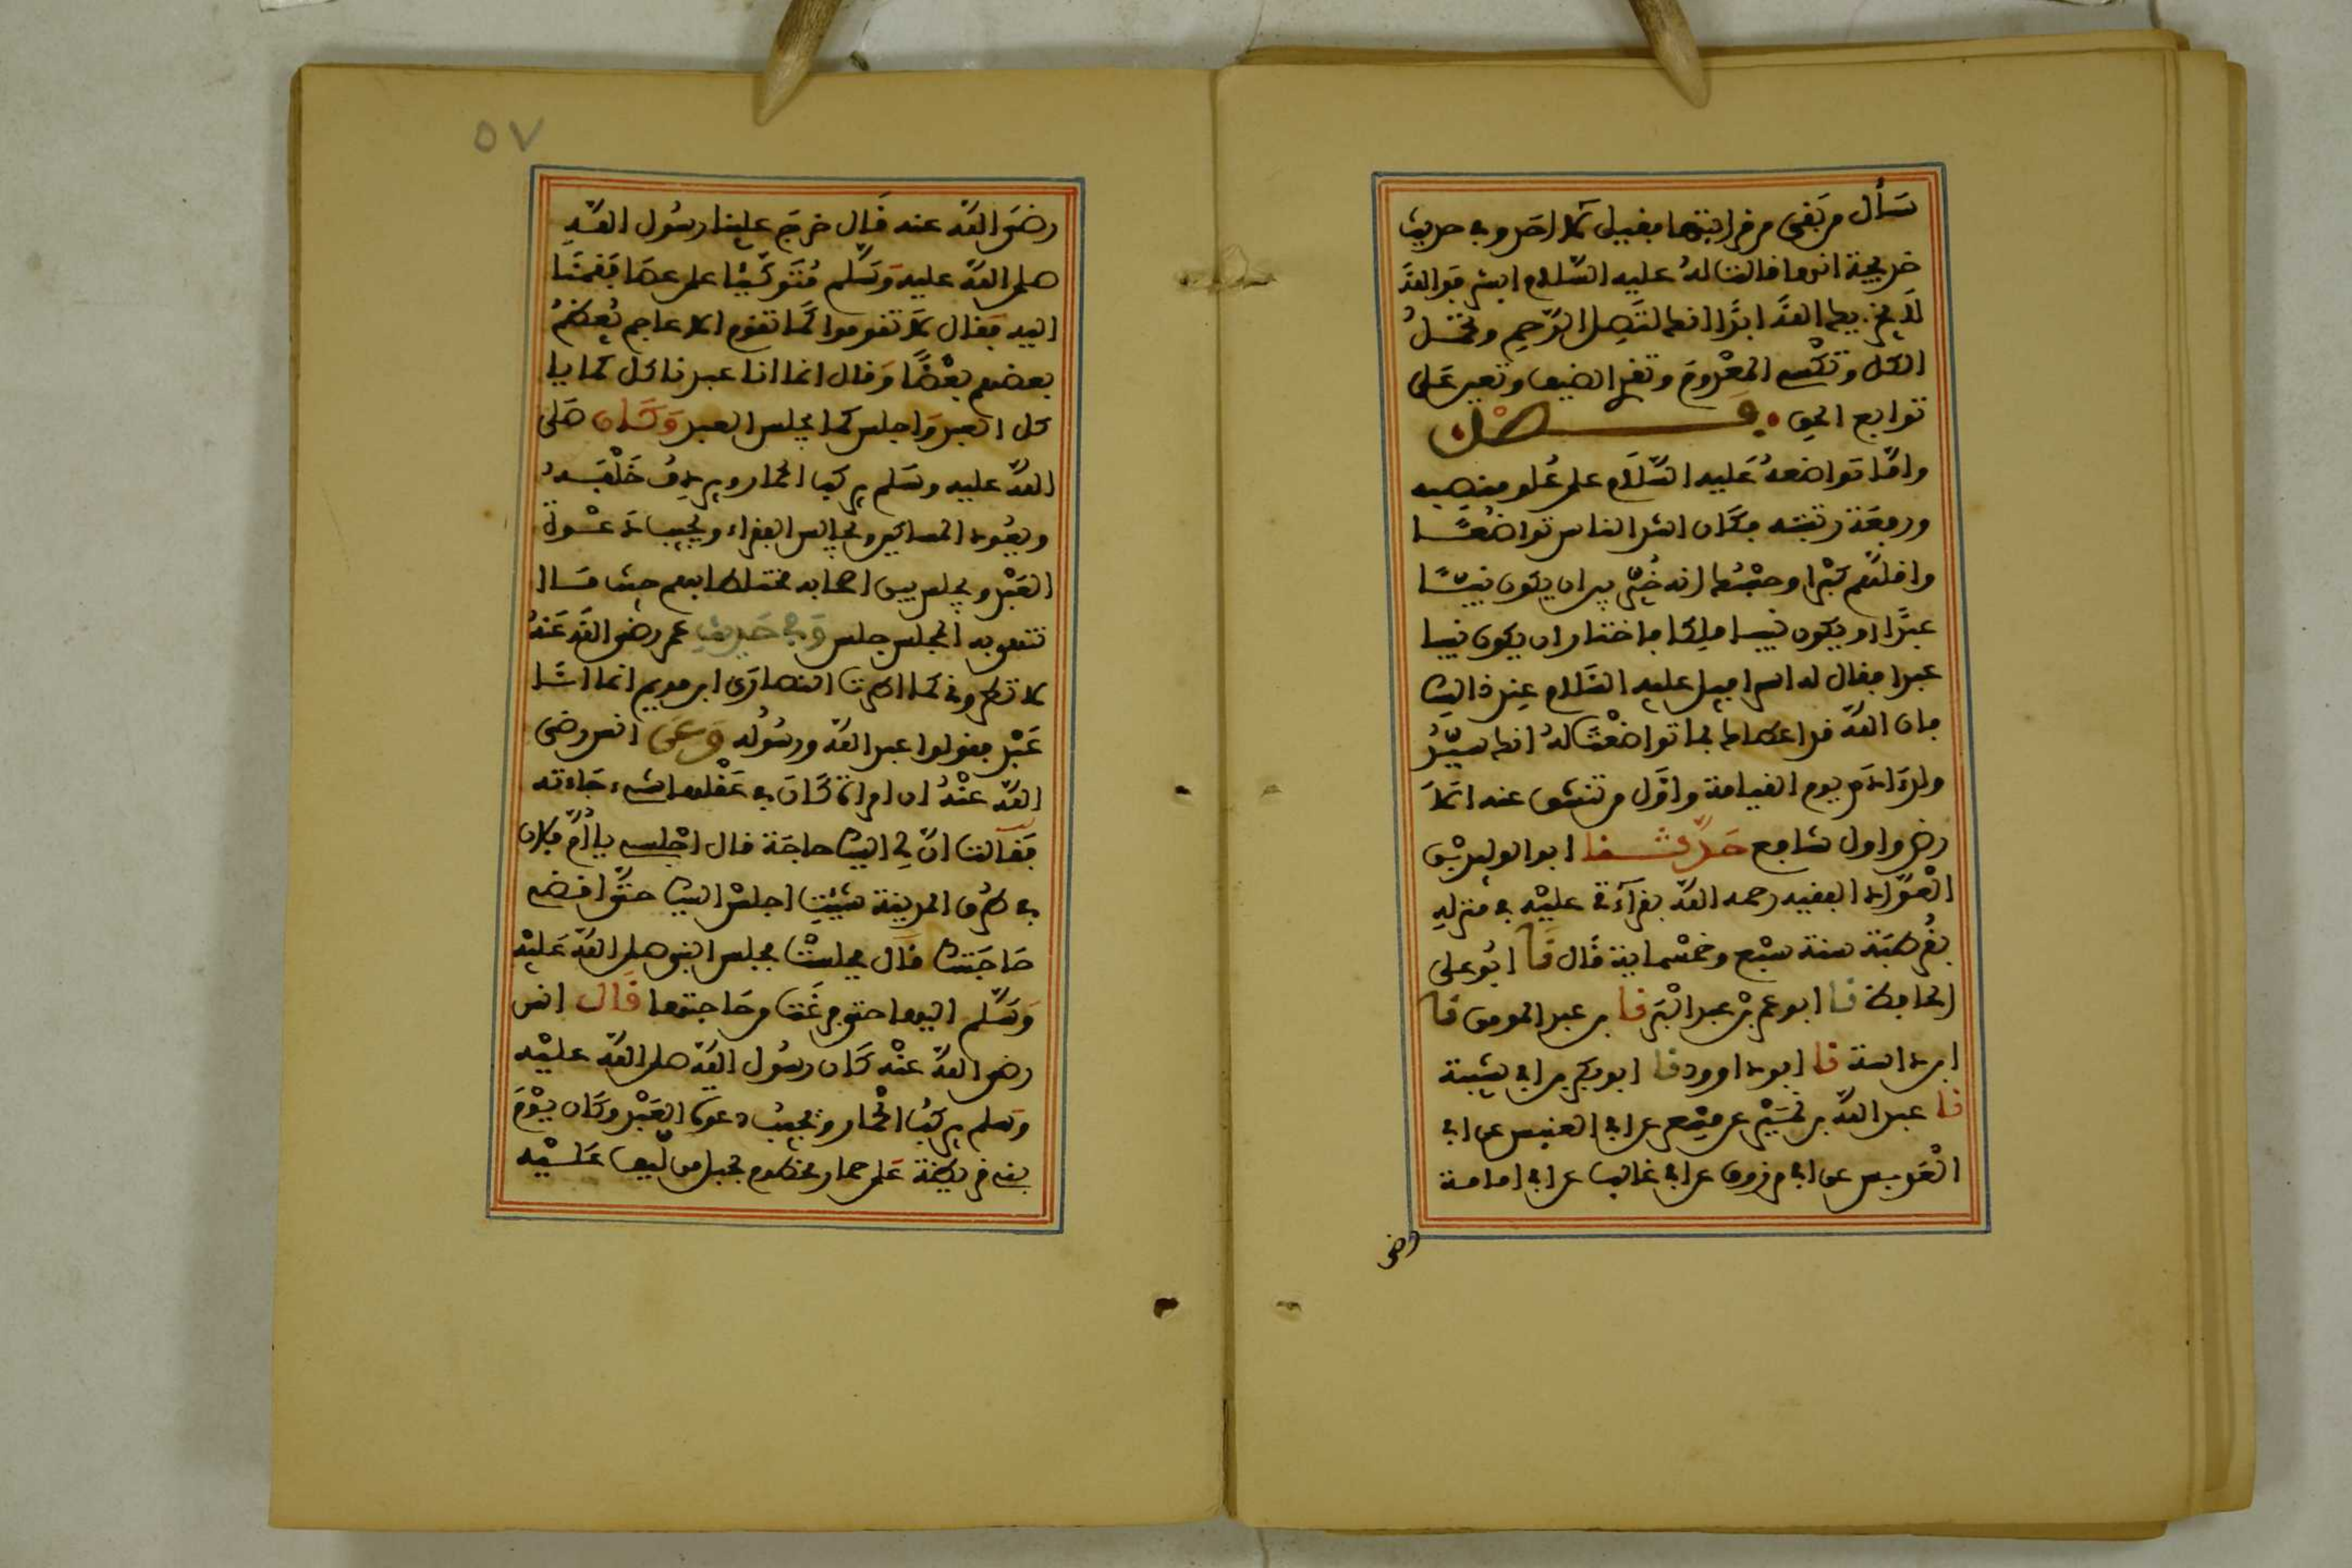 سأل من بقي من قرابتها فقيل لا أحد وفي حديث
خديجة أنها قالت له عليه السلام أبشر فوالله
لا يخزيك الله أبدا إنك لتصل الرحم وتحمل
الكل وتكسب المعدوم وتقري الضيف وتعين على
نوائب الحق فصل
وأما تواضعه عليه السلام على علو منصبه
ورفعة رتبته فكان أشد الناس تواضعا
وأقلهم كبرا وحسبك أنه خير بين أن يكون نبيا
عبدا أو يكون نبيا ملكا فاختار أن يكون نبيا
عبدا فقال له إسرافيل عليه السلام عند ذلك
فإن الله قد أعطاك بما تواضعت له أنك سيد
ولد آدم يوم القيامة وأول من تنشق عنه الأ
رض وأول شافع حدثنا أبو الوليد بن
العواد الفقيه رحمه الله بقراءتي عليه في منزله
بقرطبة سنة سبع وخمسماية قال نا أبو علي
الحافظ نا أبو عمر بن عبد البر نا بن عبد المومن نا
ابن داسة نا أبو داوود نا أبو بكر بن أبي شيبة
نا عبد الله بن نمير عن مسعر عن أبي العنبس عن أبي
العدبس عن أبي مرزوق عن أبي غالب عن أبي أمامة
رضي
٥٧
رضي الله عنه قال خرج علينا رسول الله
صلى الله عليه وسلم متوكيا على عصا فقمنا
إليه فقال لا تقوموا كما تقوم الأعاجم يعظم
بعضهم بعضا وقال إنما أنا عبد ناكل كما يا
كل العبد واجلس كما يجلس العبد وكان صلى
الله عليه وسلم يركب الحمار ويردف خلفه
ويعود المساكين ويجالس الفقراء ويجيب دعوة
العبد ويجلس بين أصحابه مختلطا بهم حيث ما ا
نتهى به المجلس جلس وفي حديث عمر رضي الله عنه
لا تطروني كما أطرت النصارى ابن مريم إنما أنا
عبد فقولوا عبد الله ورسوله وعن أنس رضي
الله عنه أن امرأة كان في عقلها شيء جاءته
فقالت إن لي إليك حاجة قال اجلسي يا أم فلان
في أي طرق المدينة شيت أجلس إليك حتى أقضي
حاجتك قال فجلست فجلس النبي صلى الله عليه
وسلم إليها حتى فرغت من حاجتها قال أنس
رضي الله عنه كان رسول الله صلى الله عليه
وسلم يركب الحمار ويجيب دعوة العبد وكان يوم
بني قريظة على حمار مخطوم بحبل من ليف عليه